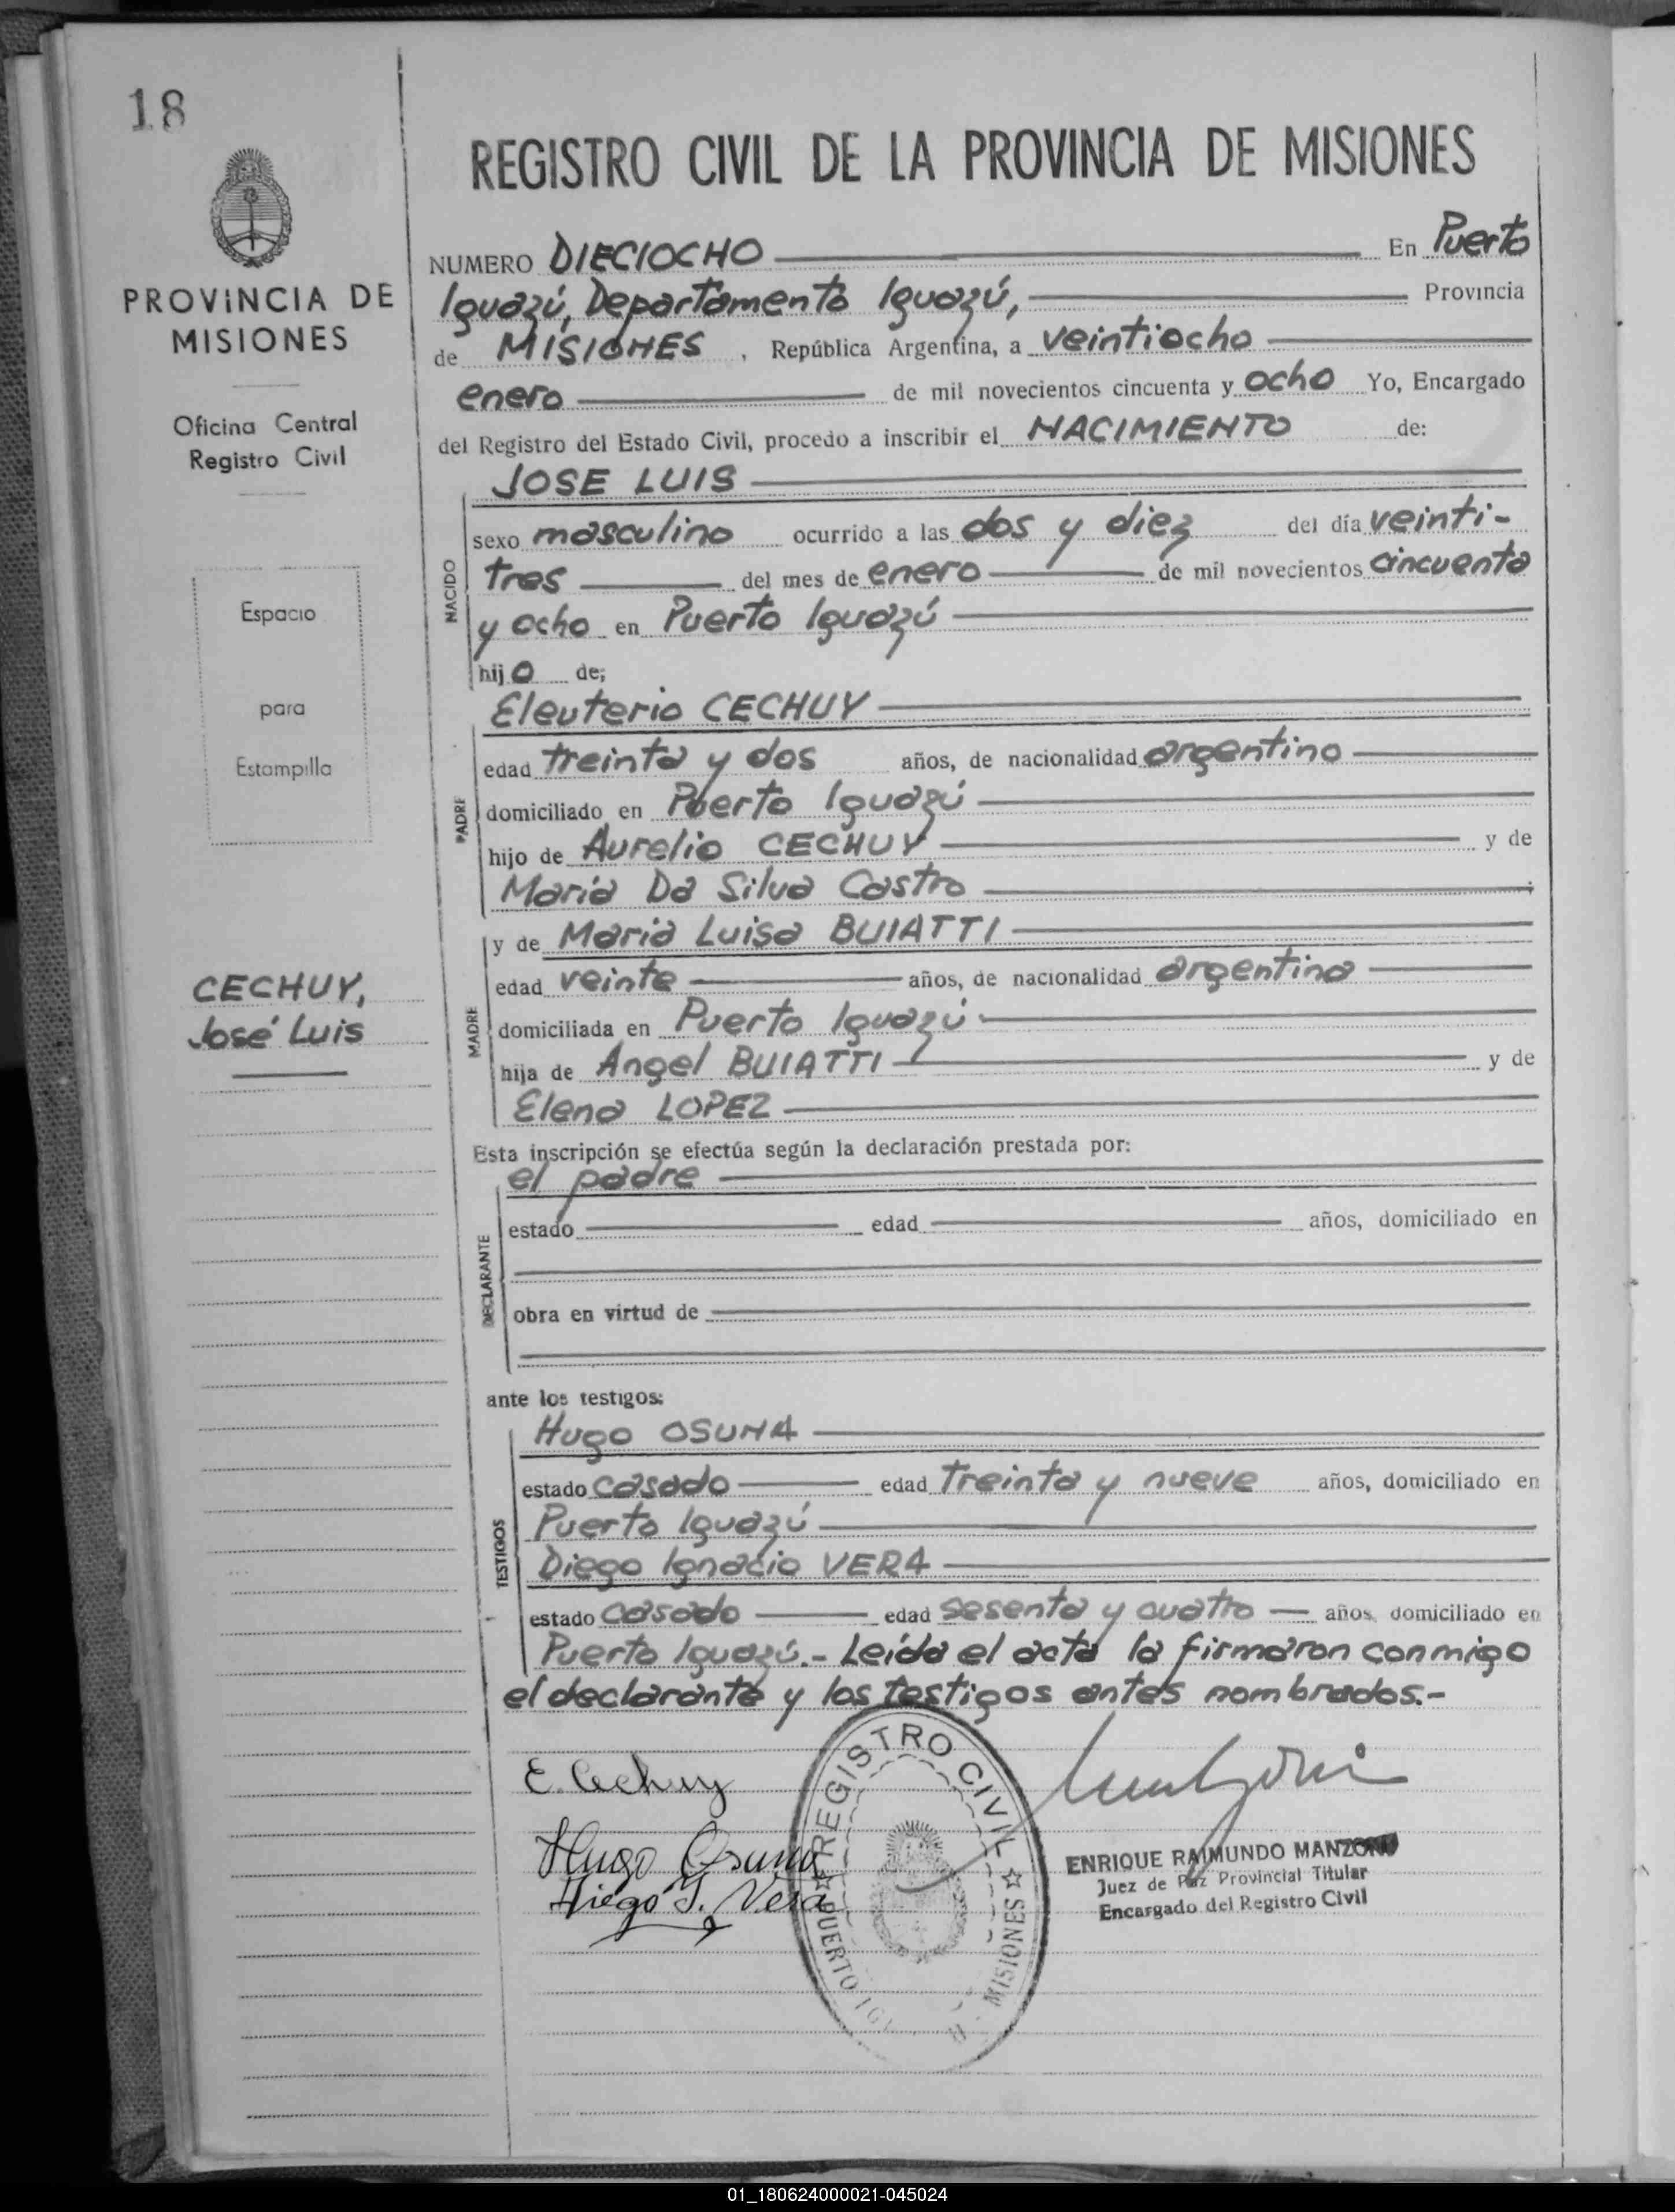 18
REGISTRO CIVIL DE LA PROVINCIA DE MISIONES
PROVINCIA DE
MISIONES
Oficina Central
Registro Civil
Espacio
para
Estampilla
CECHUY,
José Luis
NUMERO DIECIOCHO En Puerto
Iguazú, Departamento Iguazú, Provincia
de MISIONES, República Argentina, a veintiocho
enero de mil novecientos cincuenta y ocho Yo, Encargado
del Registro del Estado Civil, procedo a inscribir el NACIMIENTO de:
NACIDO
JOSE LUIS
sexo masculino ocurrido a las dos y diez del día veinti-
tres del mes de enero de mil novecientos cincuenta
y ocho en Puerto Iguazú
hijo de;
PADRE
Eleuterio CECHUY
edad treinta y dos años, de nacionalidad argentino
domiciliado en Puerto Iguazú
hijo de Aurelio CECHUY y de
María Da Silva Castro;
MADRE
y de María Luisa BUIATTI
edad veinte años, de nacionalidad argentina
domiciliada en Puerto Iguazú
hija de Angel BUIATTI y de
Elena LOPEZ
Esta inscripción se efectúa según la declaración prestada por:
DECLARANTE
el padre
estado edad años, domiciliado en
obra en virtud de
ante los testigos:
TESTIGOS
Hugo OSUNA
estado casado edad treinta y nueve años, domiciliado en
Puerto Iguazú
Diego Ignacio VERA
estado casado edad sesenta y cuatro años, domiciliado en
Puerto Iguazú.- Leída el acta la firmaron conmigo
el declarante y los testigos antes nombrados.-
E. Cechuy
Hugo Osuna
Diego I. Vera
REGISTRO CIVIL
PUERTO IGU
MISIONES
ENRIQUE RAIMUNDO MANZONI
Juez de Paz Provincial Titular
Encargado del Registro Civil
01_180624000021-045024